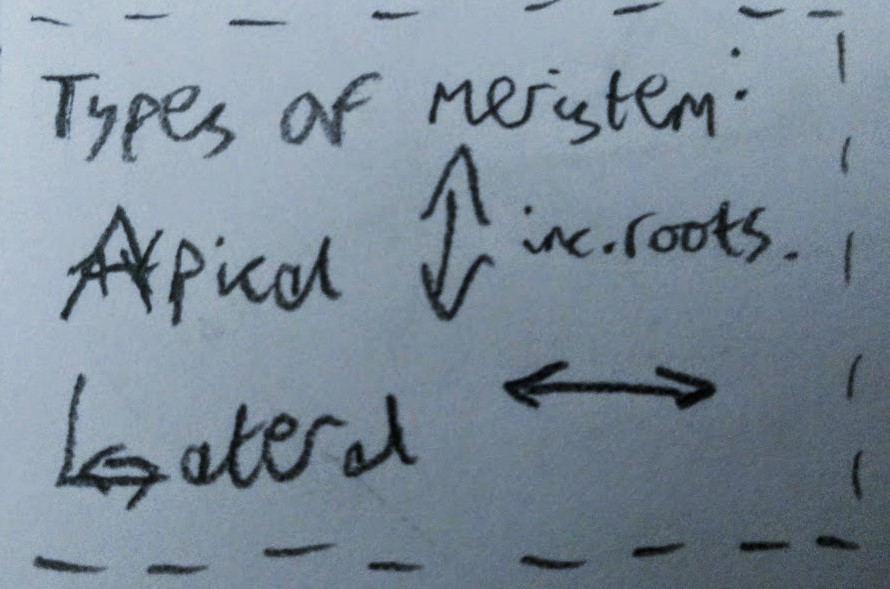 Types of meristem:
Apical ↕ inc. roots.
Lateral ↔